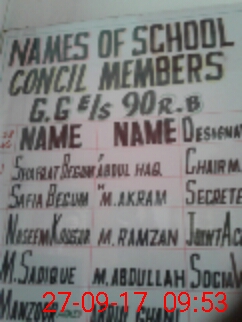 NAMES OF SCHOOL
CONCIL MEMBERS
G.G E/S 90 R.B
NAME NAME DESIGNAT
SHARAFAT BEGUM ABDUL HAQ. CHAIRM
SAFIA BEGUM "M.AKRAM SECRETE
NASEEM KOUSAR M. RAMZAN JOINT AC
M. SADIQUE M. ABDULLAH SOCIAL
MANZOOR ABDUL GHANI
27-09-17 09:53